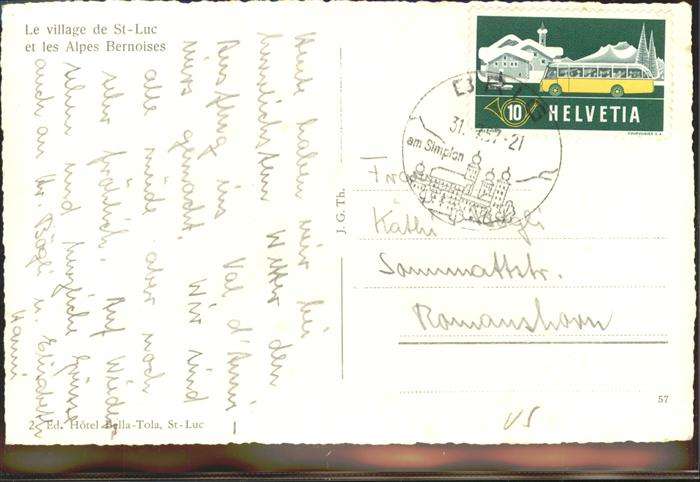 Le village de St-Luc
et les Alpes Bernoises
Heute haben wir bei
herrlichstem Wetter den
Ausflug ins Val d'Anni-
viers gemacht. Wir sind
alle müde aber noch
sehr fröhlich. Auf Wieder-
sehn und herzliche Grüsse
auch an Hr. Bögli u. Elisabeth
Hanni
2. Ed. Hôtel Bella-Tola, St-Luc
J. G. Th.
HELVETIA
10
COURVOISIER S.A.
31. 57-21
am Simplon
Frau
Käthi Bögli
Sommattstr.
Romanshorn
57